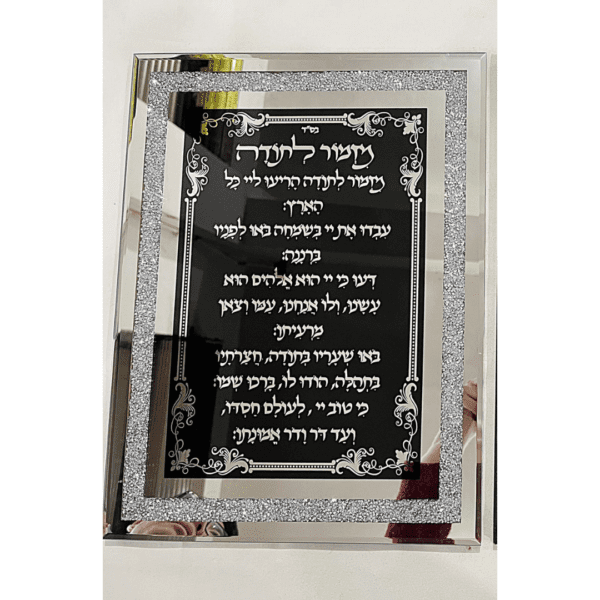 בס"ד
מזמור לתודה
מזמור לתודה הריעו ליי כל
הארץ:
עבדו את יי בשמחה באו לפניו
ברננה:
דעו כי יי הוא אלהים הוא
עשנו, ולו אנחנו, עמו וצאן
מרעיתו:
באו שעריו בתודה, חצרתיו
בתהלה, הודו לו, ברכו שמו:
כי טוב יי, לעולם חסדו,
ועד דר ודר אמונתו: